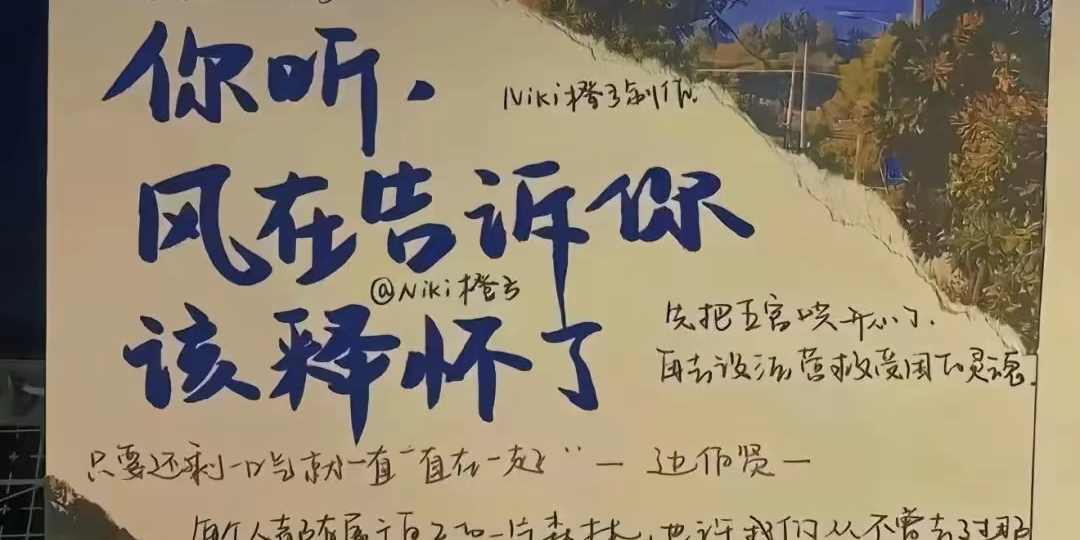 你听，
Niki橙子制作
风在告诉你
@Niki橙子
该释怀了
先把五官哄开心了，
再去设法营救受困的灵魂.
只要还剩一口气就一直一直在一起" — 边伯贤 —
每个人都有属于自己的一片森林，也许我们从不曾去过那